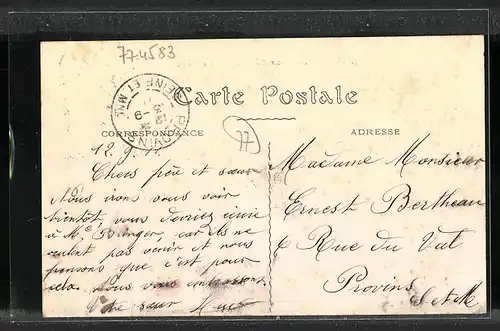 77-4583
Carte Postale
CORRESPONDANCE
ADRESSE
PROVINS
SEINE ET MNE
77
12
Chers père et sœur
Nous irons vous voir
bientôt, vous devriez écrire
à Me car ils ne
veulent pas venir et nous
pensons que c'est pour
cela. Nous vous embrassons.
Votre sœur
Madame Monsieur
Ernest Bertheau
6 Rue du Val
Provins
S et M